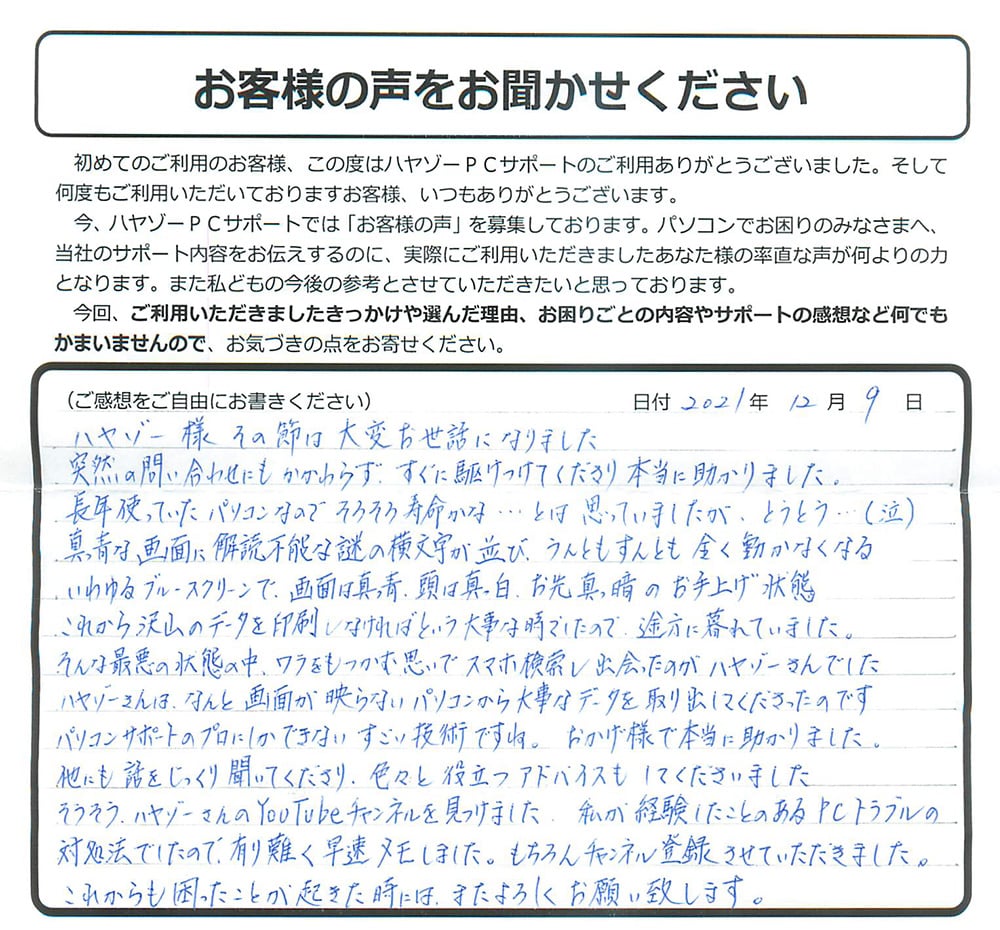 お客様の声をお聞かせください
初めてのご利用のお客様、この度はハヤゾーPCサポートのご利用ありがとうございました。そして
何度もご利用いただいておりますお客様、いつもありがとうございます。
今、ハヤゾーPCサポートでは「お客様の声」を募集しております。パソコンでお困りのみなさまへ、
当社のサポート内容をお伝えするのに、実際にご利用いただきましたあなた様の率直な声が何よりの力
となります。また私どもの今後の参考とさせていただきたいと思っております。
今回、ご利用いただきましたきっかけや選んだ理由、お困りごとの内容やサポートの感想など何でも
かまいませんので、お気づきの点をお寄せください。
（ご感想をご自由にお書きください） 日付 2021年 12月 9日
ハヤゾー様 その節は大変お世話になりました
突然の問い合わせにもかかわらず、すぐに駆けつけてくださり本当に助かりました。
長年使っていたパソコンなのでそろそろ寿命かな…とは思っていましたが、とうとう…（泣）
真っ青な画面に解読不能な謎の横文字が並び、うんともすんとも全く動かなくなる
いわゆるブルースクリーンで、画面は真っ青、頭は真っ白、お先真っ暗のお手上げ状態
これから沢山のデータを印刷しなければという大事な時でしたので、途方に暮れていました。
そんな最悪の状態の中、ワラをもつかむ思いでスマホ検索し出会ったのがハヤゾーさんでした
ハヤゾーさんは、なんと画面が映らないパソコンから大事なデータを取り出してくださったのです
パソコンサポートのプロにしかできないすごい技術ですね。おかげ様で本当に助かりました。
他にも話をじっくり聞いてくださり、色々と役立つアドバイスもしてくださいました
そうそう、ハヤゾーさんのYouTubeチャンネルを見つけました。私が経験したことのあるPCトラブルの
対処法でしたので、有り難く早速メモしました。もちろんチャンネル登録させていただきました。
これからも困ったことが起きた時には、またよろしくお願い致します。